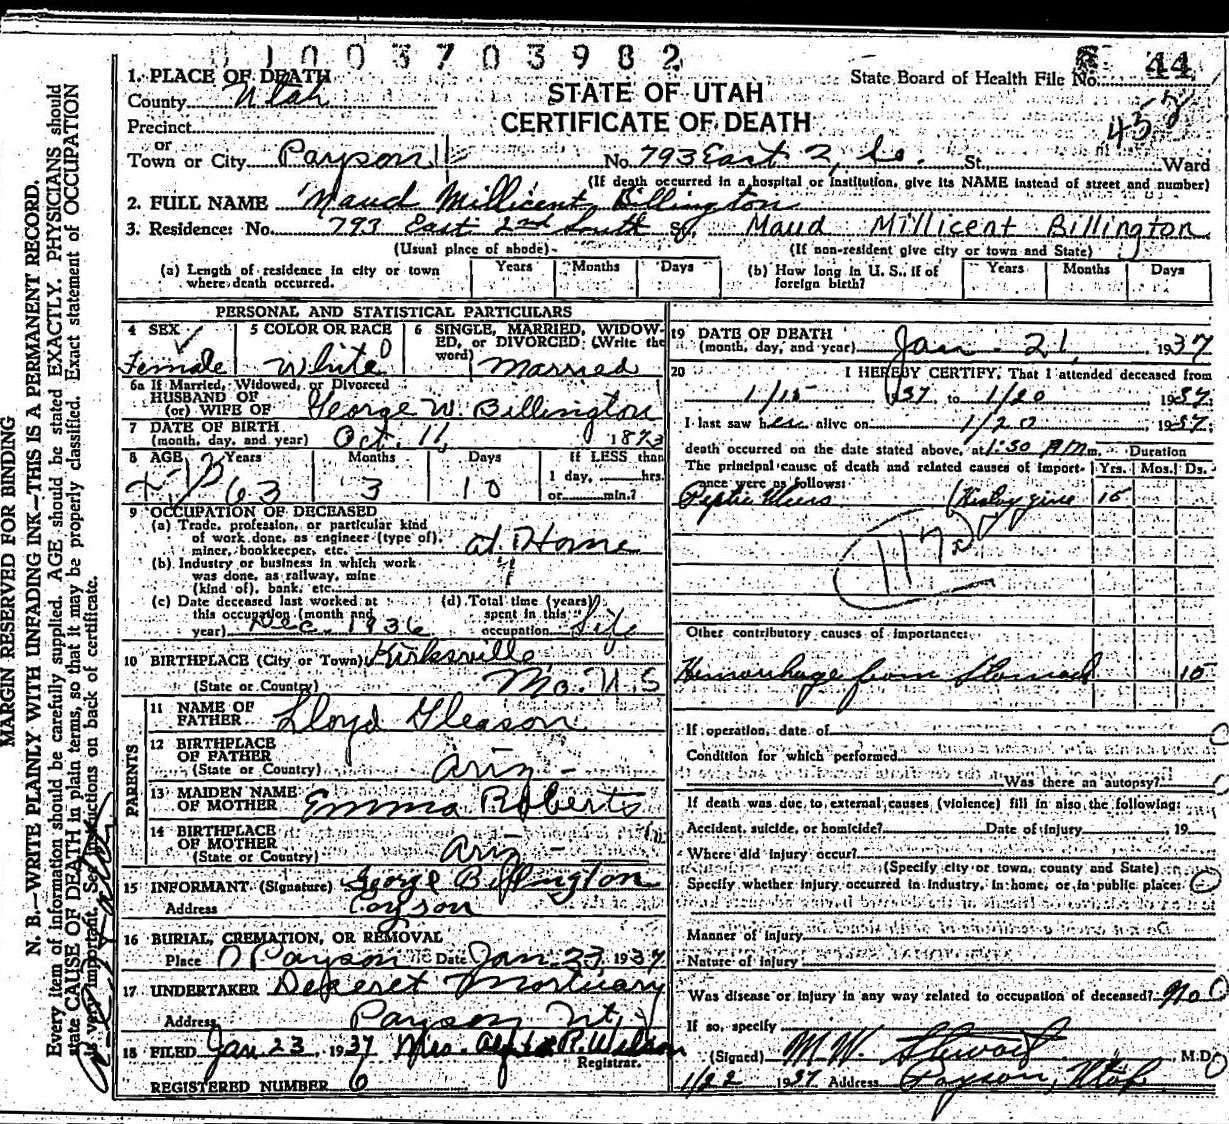 0 1 0 0 3 7 0 3 9 8 2
State Board of Health File No. 44
458
STATE OF UTAH
CERTIFICATE OF DEATH
1. PLACE OF DEATH
County Utah
Precinct
or
Town or City Payson No. 793 East 2, So. St. Ward
(If death occurred in a hospital or institution, give its NAME instead of street and number)
2. FULL NAME Maud Millicent Billington
3. Residence: No. 793 East 2nd South St. Maud Millicent Billington
(Usual place of abode) (If non-resident give city or town and State)
(a) Length of residence in city or town where death occurred. Years Months Days
(b) How long in U. S., if of foreign birth? Years Months Days
PERSONAL AND STATISTICAL PARTICULARS
4 SEX Female
5 COLOR OR RACE White
6 SINGLE, MARRIED, WIDOWED, or DIVORCED: (Write the word) Married
6a If Married, Widowed, or Divorced
HUSBAND OF
(or) WIFE OF George W. Billington
7 DATE OF BIRTH
(month, day, and year) Oct. 11, 1873
8 AGE Years Months Days If LESS than
63 3 10 1 day, hrs.
or min.?
9 OCCUPATION OF DECEASED
(a) Trade, profession, or particular kind
of work done, as engineer (type of),
miner, bookkeeper, etc. at Home
(b) Industry or business in which work
was done, as railway, mine
(kind of), bank, etc.
(c) Date deceased last worked at
this occupation (month and
year) Dec. 1936
(d) Total time (years)
spent in this
occupation Life
10 BIRTHPLACE (City or Town) Kirksville
(State or Country) Mo. U.S
PARENTS
11 NAME OF
FATHER Lloyd Gleason
12 BIRTHPLACE
OF FATHER
(State or Country) Ariz -
13 MAIDEN NAME
OF MOTHER Emma Roberts
14 BIRTHPLACE
OF MOTHER
(State or Country) Ariz -
15 INFORMANT (Signature) George Billington
Address Payson
16 BURIAL, CREMATION, OR REMOVAL
Place Payson Date Jan. 23, 1937
17 UNDERTAKER Deseret Mortuary
Address Payson Ut.
18 FILED Jan 23, 1937 Mrs. R. Wilson
Registrar.
REGISTERED NUMBER 6
19 DATE OF DEATH
(month, day, and year) Jan - 21, 1937
20 I HEREBY CERTIFY, That I attended deceased from
1/15 1937 to 1/20 1937
I last saw her alive on 1/20 1937;
death occurred on the date stated above, at 1:30 A.M. m. Duration
The principal cause of death and related causes of importance were as follows: Yrs. Mos. Ds.
Peptic Ulcers (History give 15
117a
Other contributory causes of importance:
Hemorrhage from Stomach 10
If operation, date of
Condition for which performed
Was there an autopsy?
If death was due to external causes (violence) fill in also the following:
Accident, suicide, or homicide? Date of injury , 19
Where did injury occur?
(Specify city or town, county and State)
Specify whether injury occurred in industry, in home, or in public place:
Manner of injury
Nature of injury
Was disease or injury in any way related to occupation of deceased? No
If so, specify
(Signed) M. W. Stewart M.D.
1/22 1937 Address Payson, Utah
MARGIN RESERVED FOR BINDING
N. B.—WRITE PLAINLY WITH UNFADING INK—THIS IS A PERMANENT RECORD.
Every item of information should be carefully supplied. AGE should be stated EXACTLY. PHYSICIANS should
state CAUSE OF DEATH in plain terms, so that it may be properly classified. Exact statement of OCCUPATION
is very important. See instructions on back of certificate.